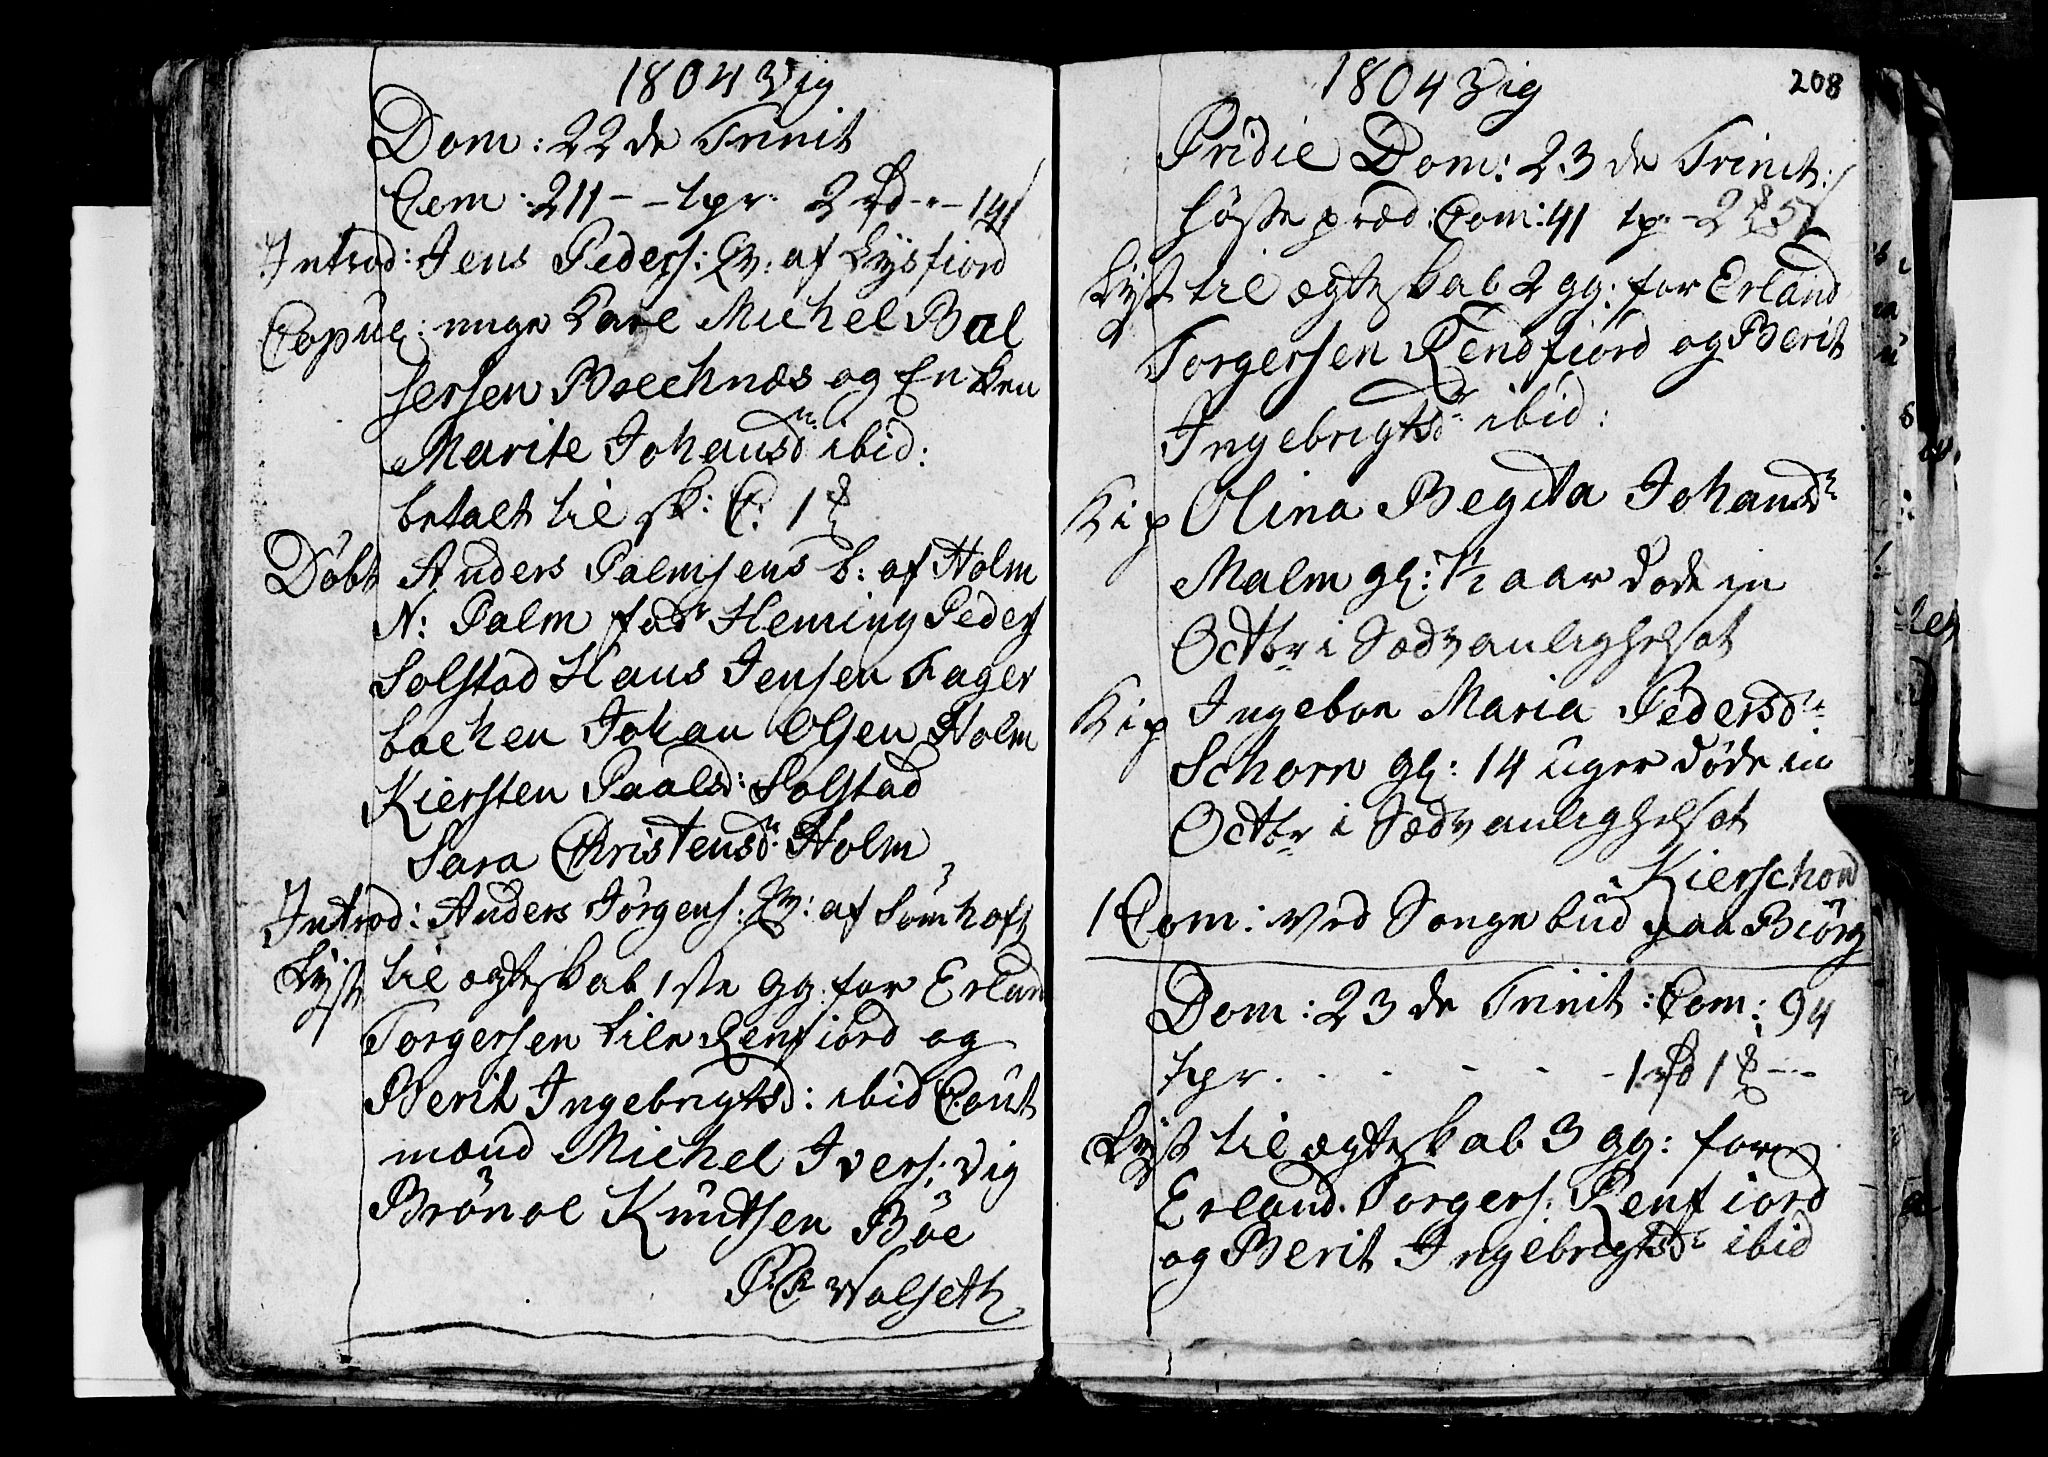 1804 Vig
Dom: 22 de Trinit
Com: 211 - - tpr. 2 rd - - 14
Introd: Jens Peders: Qv: af Lysfiord
Copul: unge Karl Michel Bal
sersen Boechnæs og Enken
Marite Johansdr ibid:
betalt til sk: C: 1
Döbt Anders Palmsens b: af Holm
N: Palm fadr Heming Peders
Solstad Hans Jensen Fager
bachen Johan Olsen Holm
Kiersten Paalsd: Solstad
Sara Christensdr: Holm
Introd: Anders Jörgens: Qv: af Sömhoft
Lyst til ægteskab 1ste gg: for Erland
Torgersen Renfiord og
Berit Ingebrigtsd: ibid Cout
mænd Michel Ivers: Vig
Brönol Knudtsen Böe
Walseth
208
1804 Vig
Pridie Dom: 23 de Trinit:
höste præd: Com: 41 tp - 2 5
Lyst til ægteskab 2 gg: for Erland
Torgersen Rendfiord og Berit
Ingebrigtsdr ibid:
Kip Olina Begita Johansdr
Malm gl: 7½ aar döde in
Octbr i Sædvanlighelsot
Kip Ingebor Maria Pedersdr
Schorn gl: 14 uger döde in
Octbr i Sædvanlighelsot
Kierschow
1 Com: ved Songebud paa Biörg
Dom: 23 de Trinit: Com: 94
tpr. - - - - - 1 rd 1 - -
Lyst til ægteskab 3 gg: for
Erland Torgers: Renfiord
og Berit Ingebrigtsdr ibid